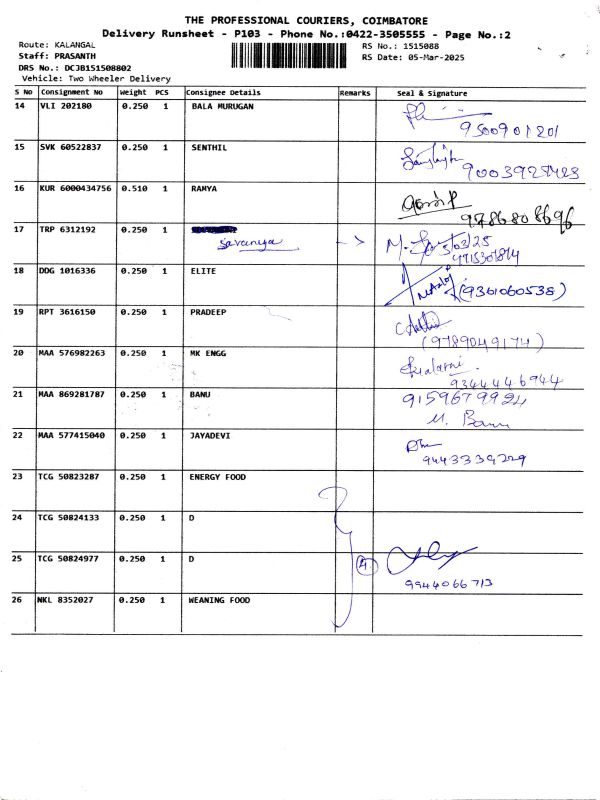 THE PROFESSIONAL COURIERS, COIMBATORE
Delivery Runsheet - P103 - Phone No.:0422-3505555 - Page No.:2
Route: KALANGAL
RS No.: 1515088
Staff: PRASANTH
RS Date: 05-Mar-2025
DRS No.: DCJB151508802
Vehicle: Two Wheeler Delivery
S No Consignment No Weight PCS Consignee Details Remarks Seal & Signature
14 VLI 202180 0.250 1 BALA MURUGAN
9500901201
15 SVK 60522837 0.250 1 SENTHIL
16 KUR 6000434756 0.510 1 RAMYA
9786808696
17 TRP 6312192 0.250 1
Savanya -->
18 DDG 1016336 0.250 1 ELITE
(9361060538)
19 RPT 3616150 0.250 1 PRADEEP
(9789049174)
20 MAA 576982263 0.250 1 MK ENGG
9344446944
21 MAA 869281787 0.250 1 BANU 9159679924
M. Banu
22 MAA 577415040 0.250 1 JAYADEVI
9443339229
23 TCG 50823287 0.250 1 ENERGY FOOD
24 TCG 50824133 0.250 1 D
25 TCG 50824977 0.250 1 D 4
9944066713
26 NKL 8352027 0.250 1 WEANING FOOD